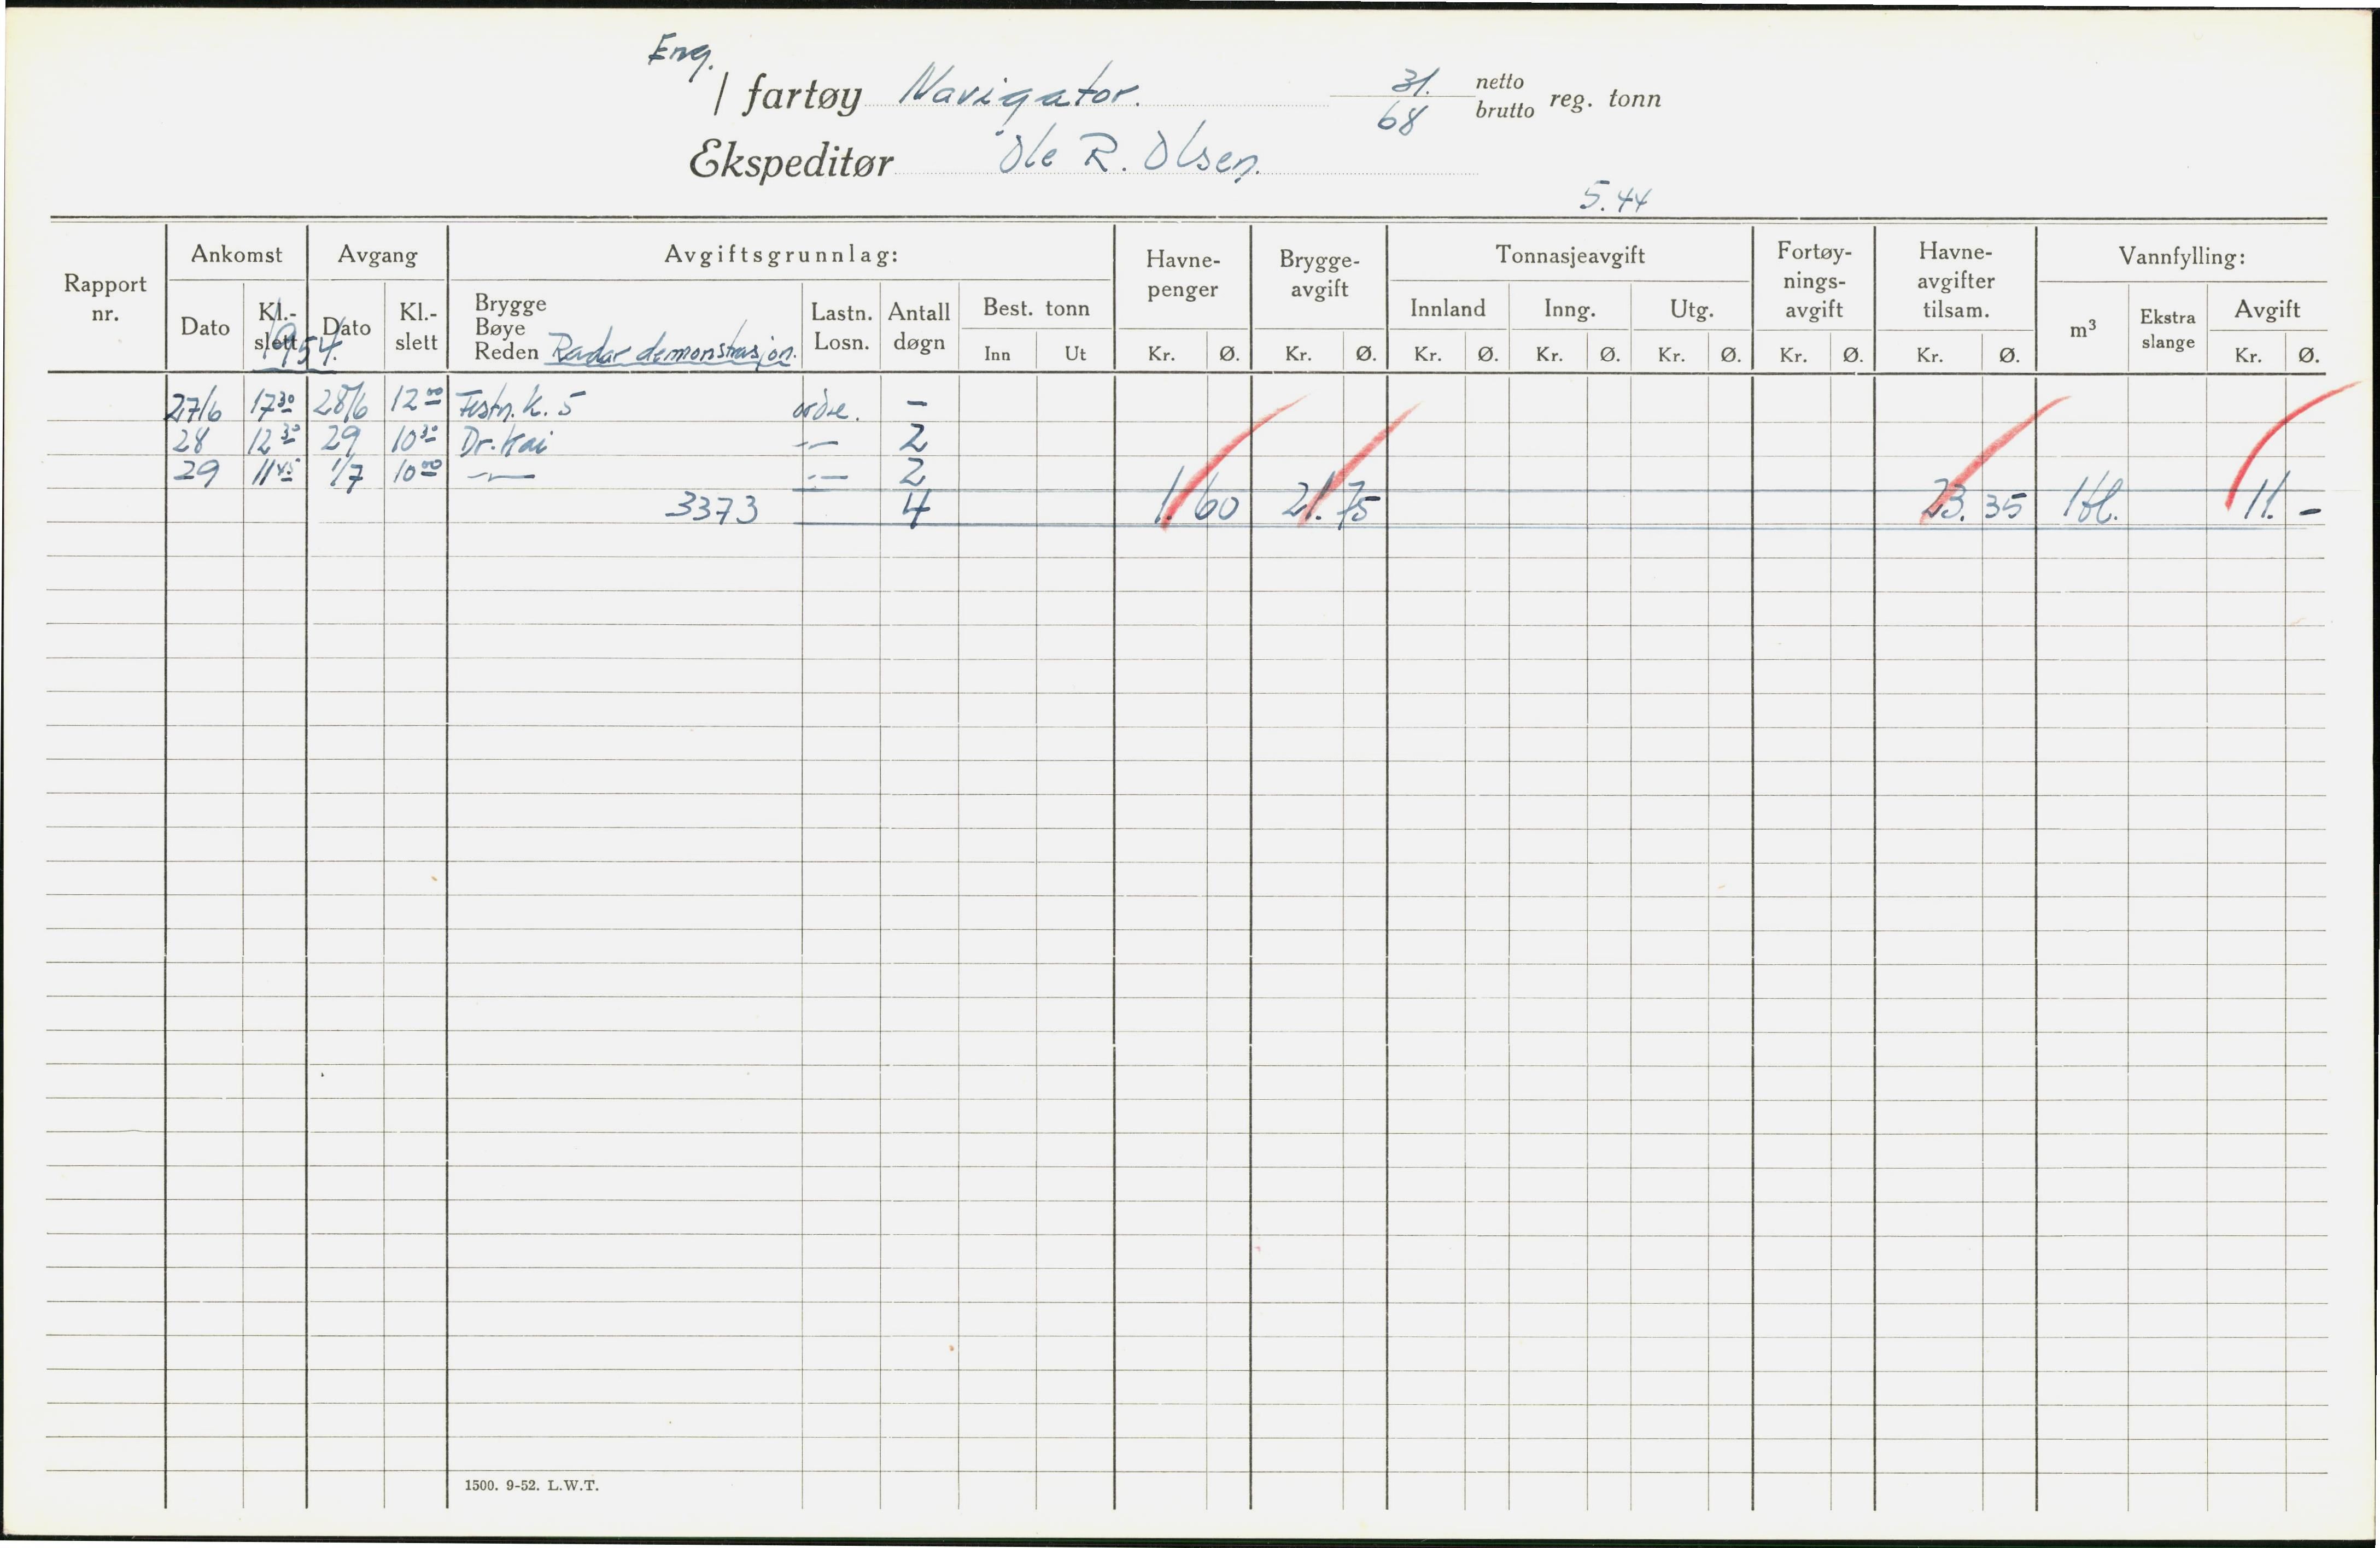 Eng.
/ fartøy Navigator. 31. netto
68 brutto reg. tonn
Ekspeditør Ole R. Olsen.
5.44
Rapport nr. Ankomst Avgang Avgiftsgrunnlag: Havne-penger Brygge-avgift Tonnasjeavgift Fortøy-nings-avgift Havne-avgifter tilsam. Vannfylling:
Dato Kl.-slett Dato Kl.-slett Brygge Bøye Reden Radar demonstrasjon. Lastn. Losn. Antall døgn Best. tonn Innland Inng. Utg. m³ Ekstra slange Avgift
Inn Ut Kr. Ø. Kr. Ø. Kr. Ø. Kr. Ø. Kr. Ø. Kr. Ø. Kr. Ø. Kr. Ø.
1954.
27/6 17³⁰ 28/6 12⁰⁰ Festn. K. 5 ordre. –
28 12³⁰ 29 10³⁰ Dr. Kai –"– 2
29 11⁴⁵ 1/7 10⁰⁰ –"– –"– 2
3373 4 1.60 21.75 23.35 11.-
1500. 9-52. L.W.T.